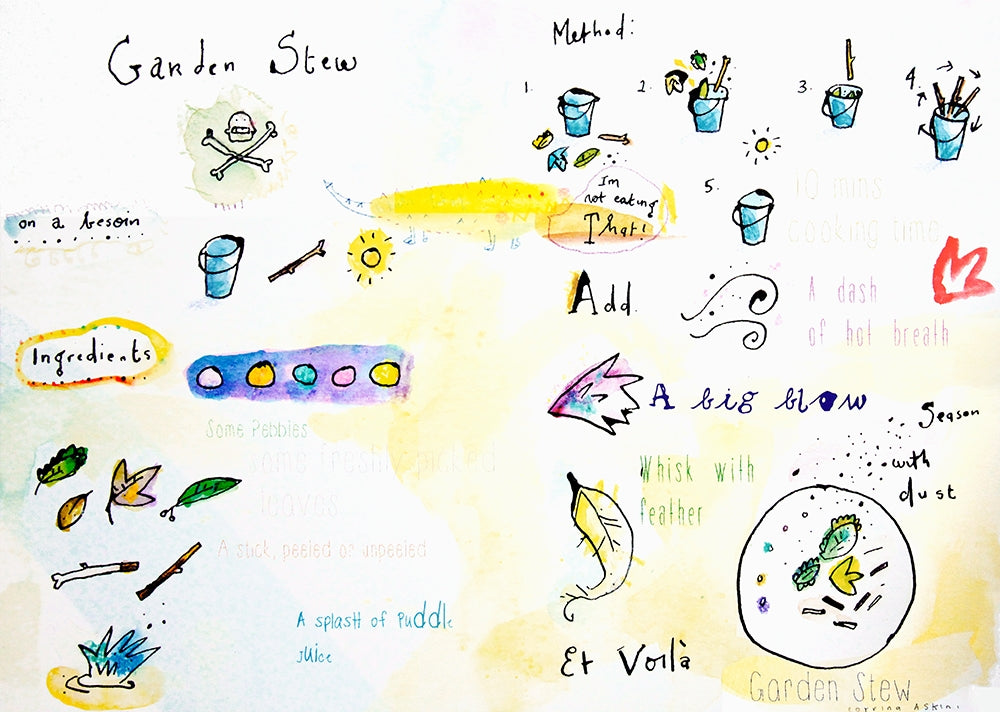 Garden Stew
on a besoin
Ingredients
Some Pebbles
some freshly picked
leaves
A stick, peeled or unpeeled
A splash of puddle
juice
Method:
1.
2.
3.
4.
I'm
not eating
That!
5.
10 mins
cooking time
Add
A dash
of hot breath
A big blow
Whisk with
feather
Season
with
dust
Et Voilà
Garden Stew
corrina Askin.